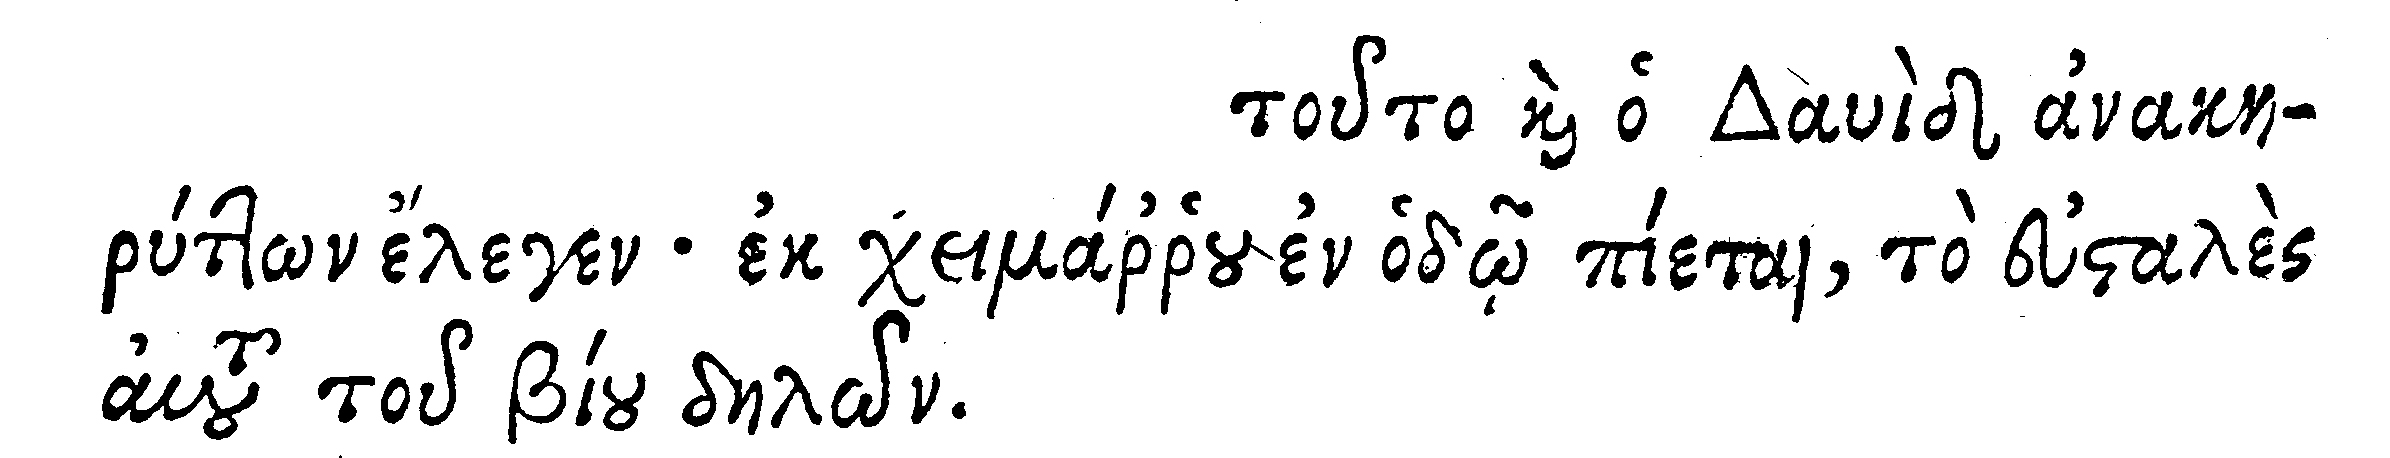 τοῦτο καὶ ὁ Δαυὶδ ἀνακη-
ρύττων ἔλεγεν · ἐκ χειμάῤῥου ἐν ὁδῷ πίεται, τὸ εὐσταλὲς
αὐτοῦ τοῦ βίου δηλῶν.